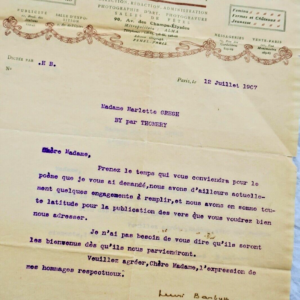 RÉDACTION ADMINISTRATION
90, Av. des Champs-Élysées
Femmes et Châteaux
.H B.
Paris, le 12 Juillet 1907
Madame Marlette
BY par THOMERY
Chère Madame,
Prenez le temps qui vous conviendra pour le
poème que je vous ai demandé, nous avons d'ailleurs actuelle-
ment quelques engagements à remplir, et nous avons en somme tou-
te latitude pour la publication des vers que vous voudrez bien
nous adresser.
Je n'ai pas besoin de vous dire qu'ils seront
les bienvenus dès qu'ils nous parviendront.
Veuillez agréer, Chère Madame, l'expression de
mes hommages respectueux.